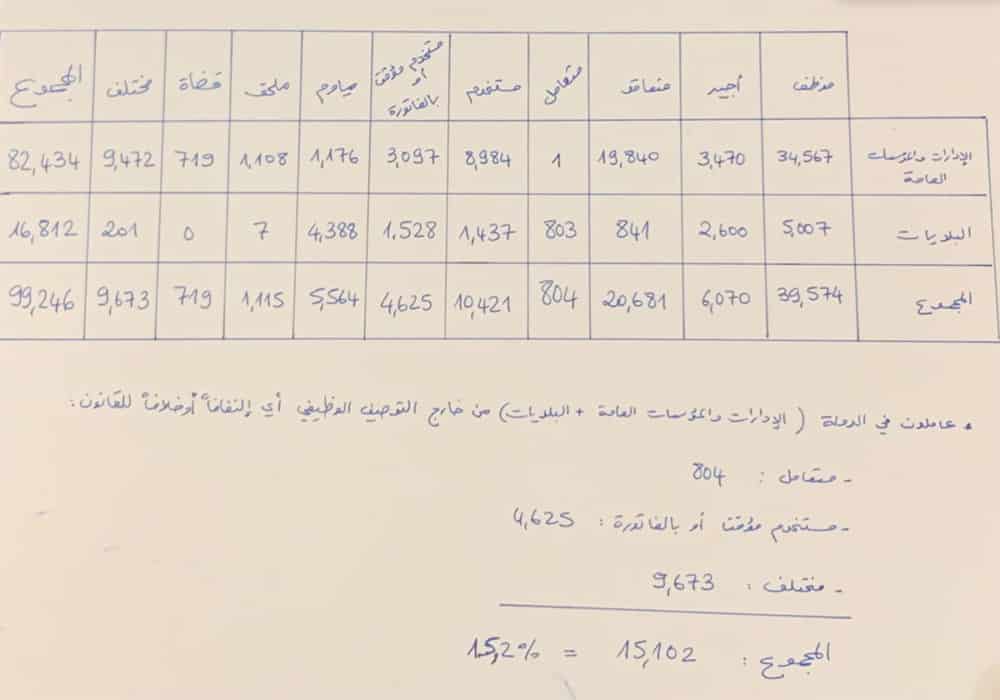 موظف أجير متعاقد متعامل مستخدم مستخدم مؤقت أو بالفاتورة مياوم ملحق قضاة مختلف المجموع
الإدارات والمؤسسات العامة 34,567 3,470 19,840 1 8,984 3,097 1,176 1,108 719 9,472 82,434
البلديات 5,007 2,600 841 803 1,437 1,528 4,388 7 0 201 16,812
المجموع 39,574 6,070 20,681 804 10,421 4,625 5,564 1,115 719 9,673 99,246
• عاملون في الدولة (الإدارات والمؤسسات العامة + البلديات) من خارج التوصيف الوظيفي أي إلتفافاً أو خلافاً للقانون:
- متعامل: 804
- مستخدم مؤقت أو بالفاتورة: 4,625
- مختلف: 9,673
المجموع: 15,102 = 15,2%